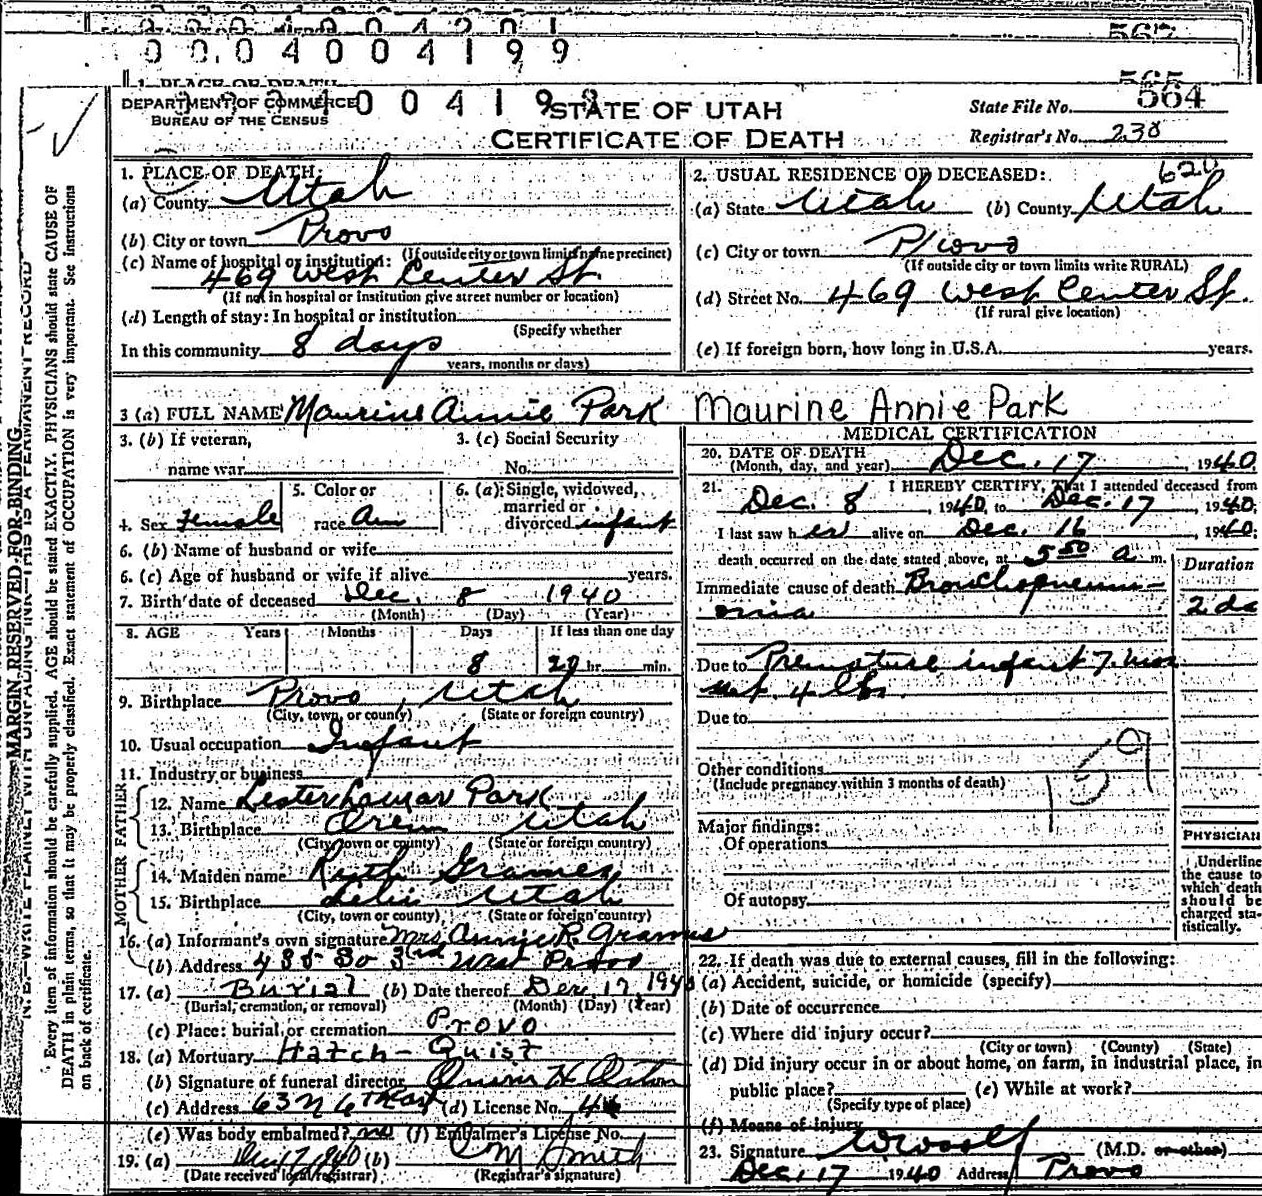 0004004201
567
0004004199
565
1. PLACE OF DEATH
564
DEPARTMENT OF COMMERCE
BUREAU OF THE CENSUS
STATE OF UTAH
CERTIFICATE OF DEATH
State File No.
Registrar's No. 238
1. PLACE OF DEATH:
(a) County Utah
(b) City or town Provo
(If outside city or town limits name precinct)
(c) Name of hospital or institution:
469 West Center St.
(If not in hospital or institution give street number or location)
(d) Length of stay: In hospital or institution
(Specify whether
In this community 8 days
years, months or days)
2. USUAL RESIDENCE OF DECEASED: 620
(a) State Utah (b) County Utah
(c) City or town Provo
(If outside city or town limits write RURAL)
(d) Street No. 469 West Center St.
(If rural give location)
(e) If foreign born, how long in U.S.A. years.
3 (a) FULL NAME Maurine Annie Park Maurine Annie Park
3. (b) If veteran,
name war
3. (c) Social Security
No.
4. Sex Female
5. Color or
race Am
6. (a) Single, widowed,
married or
divorced infant
6. (b) Name of husband or wife
6. (c) Age of husband or wife if alive years.
7. Birth date of deceased Dec. 8 1940
(Month) (Day) (Year)
8. AGE Years Months Days If less than one day
8 20 hr. min.
9. Birthplace Provo, Utah
(City, town, or county) (State or foreign country)
10. Usual occupation Infant
11. Industry or business
FATHER
12. Name Lester Lamar Park
13. Birthplace Orem Utah
(City, town or county) (State or foreign country)
MOTHER
14. Maiden name Ruth Grames
15. Birthplace Lehi Utah
(City, town or county) (State or foreign country)
16. (a) Informant's own signature Mrs Annie R. Grames
(b) Address 435 So 3rd West Provo
17. (a) Burial (b) Date thereof Dec, 17, 1940
(Burial, cremation, or removal) (Month) (Day) (Year)
(c) Place: burial or cremation Provo
18. (a) Mortuary Hatch-Quist
(b) Signature of funeral director
(c) Address 63 N 6th East (d) License No.
(e) Was body embalmed? no (f) Embalmer's License No.
19. (a) (b) M Smith
(Date received local registrar) (Registrar's signature)
MEDICAL CERTIFICATION
20. DATE OF DEATH
(Month, day, and year) Dec. 17, 1940
21. I HEREBY CERTIFY, That I attended deceased from
Dec. 8, 1940, to Dec. 17, 1940;
I last saw her alive on Dec. 16, 1940;
death occurred on the date stated above, at 5 50 a m.
Duration
Immediate cause of death Bronchopneum-
onia 2 da
Due to Premature infant 7. mos
wt. 4 lbs.
Due to
159
Other conditions
(Include pregnancy within 3 months of death)
Major findings:
Of operations
Of autopsy
PHYSICIAN
Underline
the cause to
which death
should be
charged sta-
tistically.
22. If death was due to external causes, fill in the following:
(a) Accident, suicide, or homicide (specify)
(b) Date of occurrence
(c) Where did injury occur?
(City or town) (County) (State)
(d) Did injury occur in or about home, on farm, in industrial place, in
public place? (e) While at work?
(Specify type of place)
(f) Means of injury
23. Signature W. Woolf (M.D. or other)
Dec. 17 1940 Address Provo
MARGIN RESERVED FOR BINDING
N. B.—WRITE PLAINLY WITH UNFADING INK—THIS IS A PERMANENT RECORD
Every item of information should be carefully supplied. AGE should be stated EXACTLY. PHYSICIANS should state CAUSE OF
DEATH in plain terms, so that it may be properly classified. Exact statement of OCCUPATION is very important. See instructions
on back of certificate.